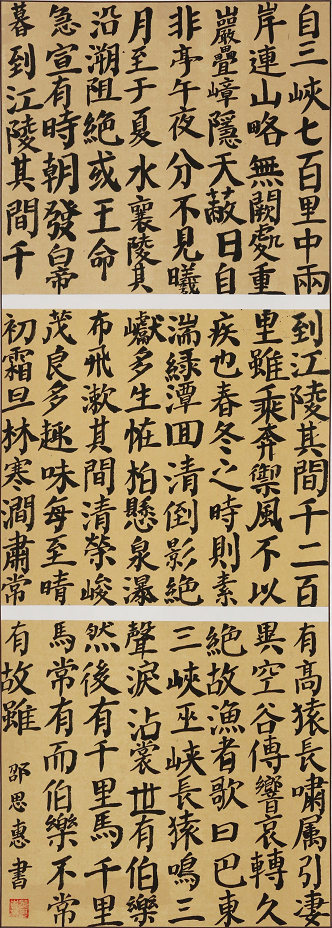 自三峽七百里中兩
岸連山略無闕處重
巖疊嶂隱天蔽日自
非亭午夜分不見曦
月至于夏水襄陵其
沿溯阻絕或王命
急宣有時朝發白帝
暮到江陵其間千
到江陵其間千二百
里雖乘奔禦風不以
疾也春冬之時則素
湍綠潭囬清倒影絕
巘多生恠柏懸泉瀑
布飛漱其間清榮峻
茂良多趣味每至晴
初霜旦林寒澗肅常
有高猿長嘯属引凄
異空谷傳響哀轉久
絕故漁者歌曰巴東
三峽巫峽長猿鳴三
聲淚沾裳世有伯樂
然後有千里馬千里
馬常有而伯樂不常
有故雖
邵思惠書